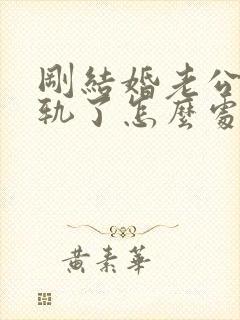 剛結婚老公
軌了怎麼處
黃素華